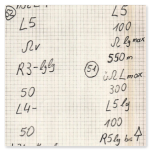 52
L5
Ωv
R3-lglg
50
L4-
50
L5
100
Ωlgmax
550m
51
ü Ω Lmax
300
L5lg
100
R5lg bc